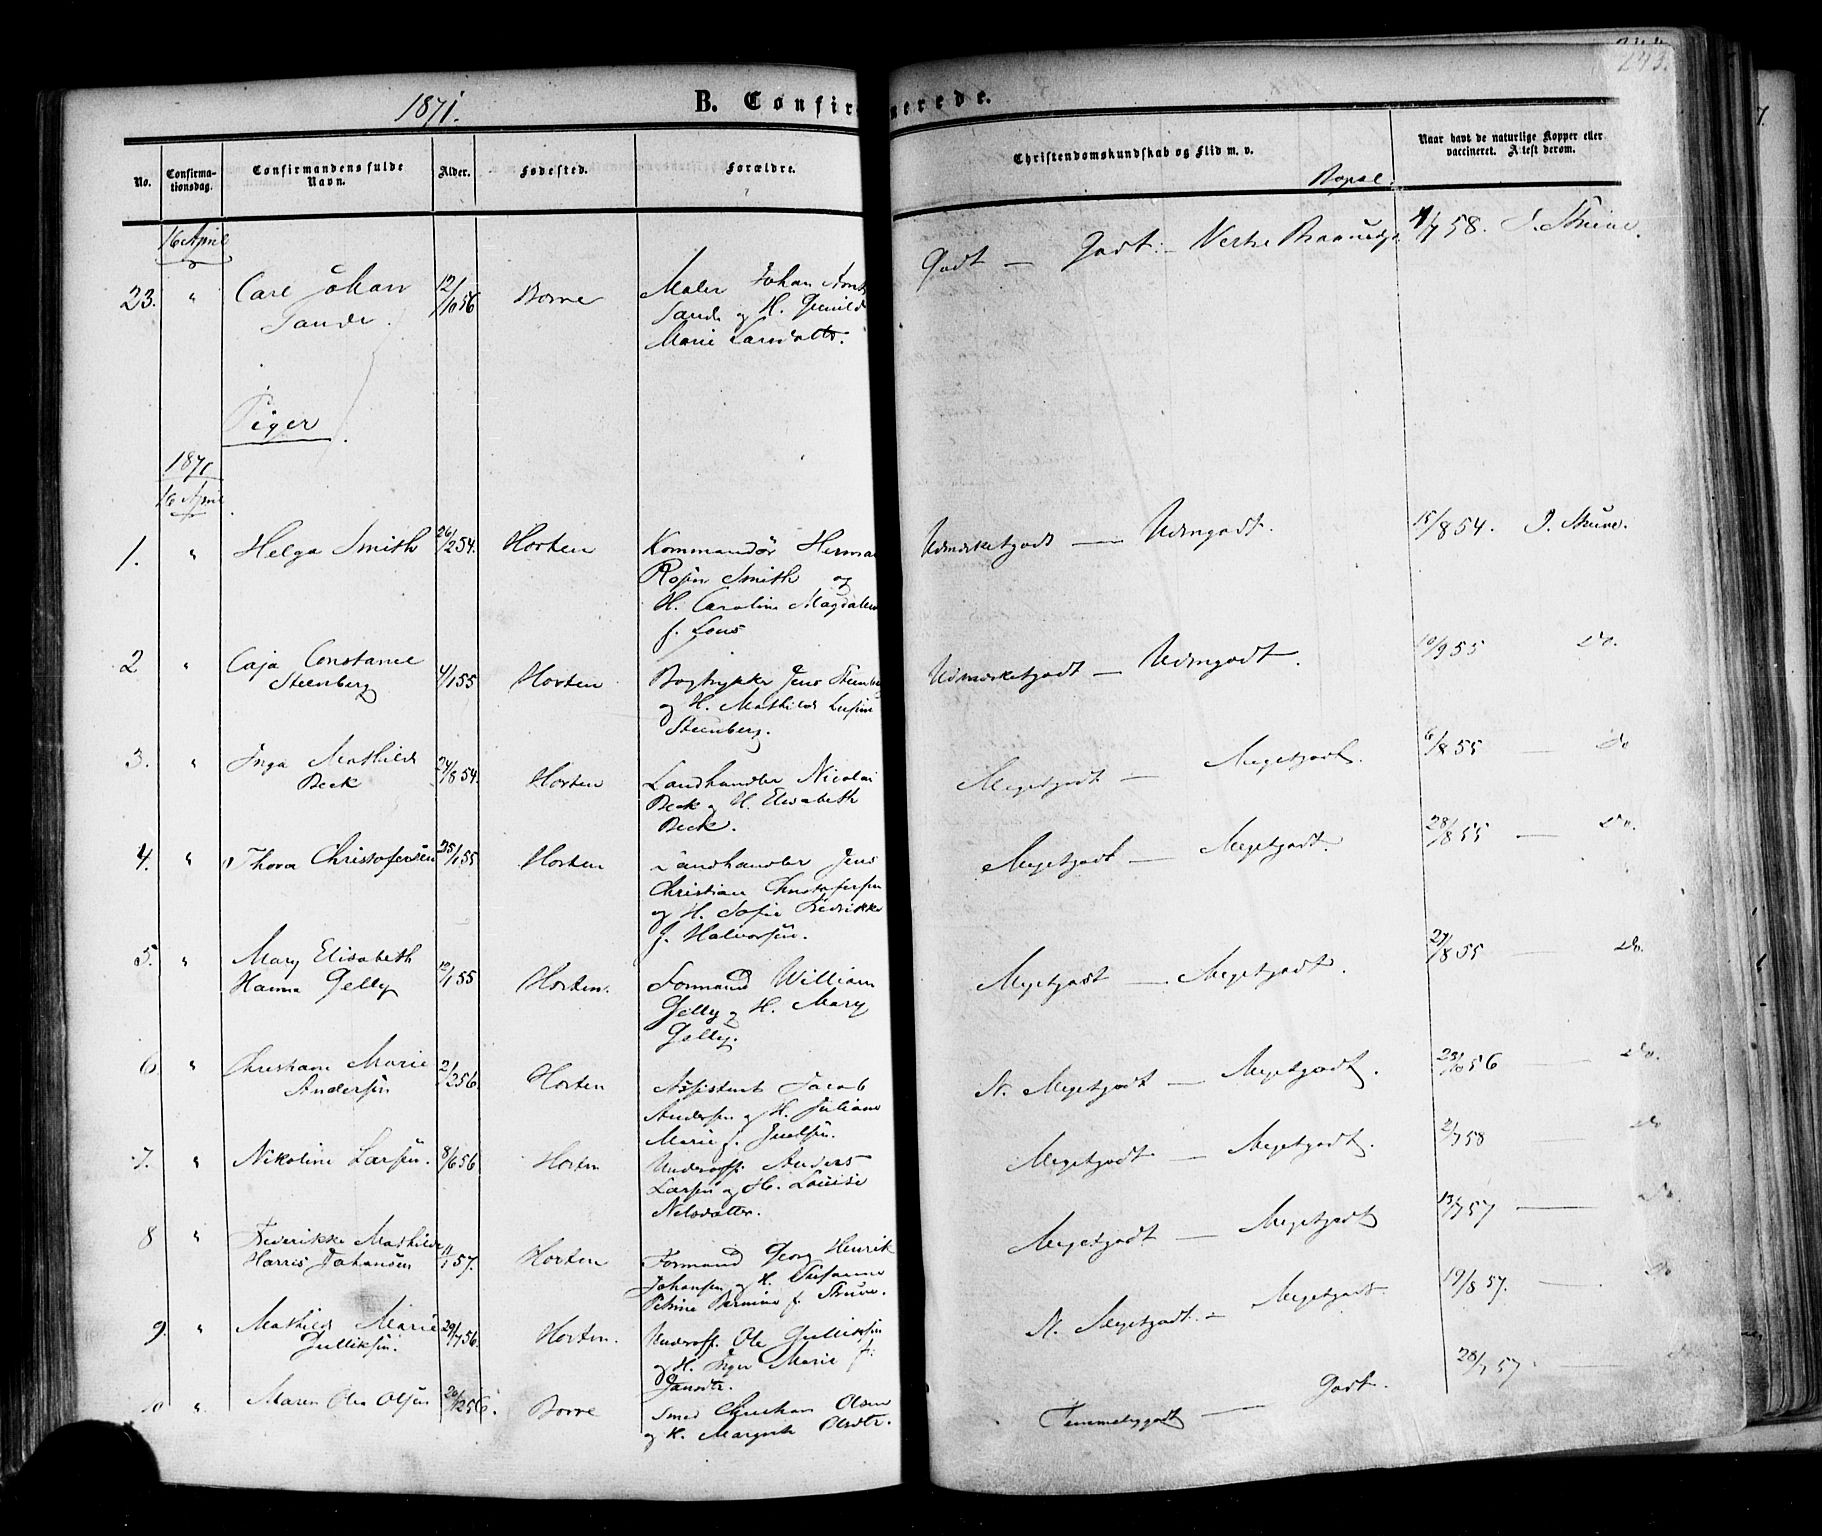 1871.
B. Confir
merede.
243.
No.
Confirma-
tionsdag.
Confirmandens fulde
Navn.
Alder.
Fødested.
Forældre.
Christendomskundskab og Flid m. v.
Bopæl.
Naar havt de naturlige Kopper eller
vaccineret. Attest derom.
16 April
23. " Carl Johan 12/10 56 Borre Maler Johan
Sande og H.
Marie Larsdatter.
Godt — Godt. — Vestre 58. J. Struve.
Piger
1871
16 April
1. " Helga Smith 26/2 54. Horten Kommandør Herman
Smith og
H. Caroline Magdalene
f.
Udmærketgodt — Udmgodt. 15/8 54. J. Struve.
2 " Caja Constance
Steenberg 4/1 55 Horten Bogtrykker Jens Steenberg
og H. Mathilde
Steenberg.
Udmærketgodt — Udmgodt. 10/9 55 Do.
3. " Inga Mathilde
Beck 24/8 54. Horten Landhandler Nicolai
Beck og H. Elisabeth
Beck.
Megetgodt — Megetgodt. 6/8 55 — Do
4. " Thora Christofersen 25/1 55 Horten Landhandler Jens
Christian Christofersen
og H. Sofie Fredrikke
f. Halvorsen.
Megetgodt — Megetgodt. 28/8 55 — Do.
5. " Mary Elisabeth
Hanna Gelly 12/1 55 Horten. Formand William
Gelly og H. Mary
Gelly.
Megetgodt — Megetgodt. 27/8 55 — Do.
6 " Christiane Marie
Andersen 2/2 56. Horten Assistent Jacob
Andersen og H. Juliane
Marie f.
N. Megetgodt — Megetgodt. 23/10 56 — Do.
7. " Nikoline Larsen. 8/6 56. Horten Underoff. Anders
Larsen og H. Louise
Nelsdatter.
Megetgodt — Megetgodt. 2/7 58 Do
8 " Frederikke Mathilde
Harris Johansen 57. Horten Formand Georg Henrik
Johansen og H. Susanne
Petrine f. Struve.
Megetgodt — Megetgodt 13/7 57 — Do.
9. " Mathilde Marie
Gulliksen. 29/7 56. Horten. Underoff. Ole Gulliksen
og H. Inger Marie f.
Jansdtr.
N. Megetgodt. — Megetgodt 19/8 57. — Do
10 " Maren Olsen 20/12 56. Borre Smed Christian Olsen
og H. Margrete Olsdtr.
Temmeliggodt — Godt. 28/7 57 —